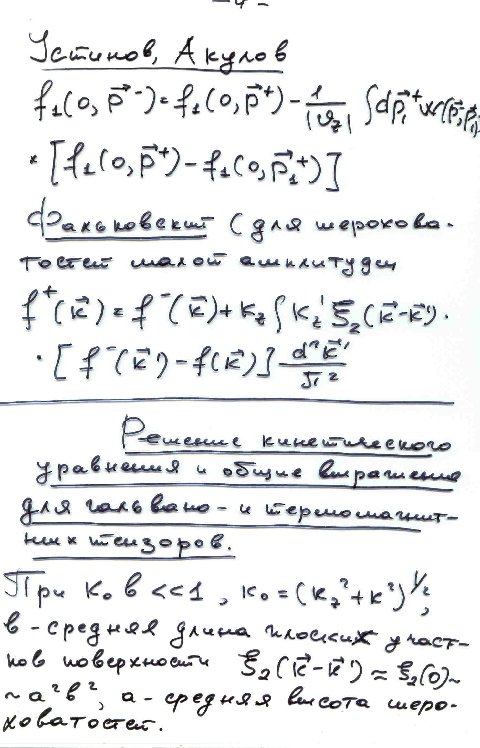 – 4 –
Устинов, Акулов
f₁(0, p⃗⁻) = f₁(0, p⃗⁺) − 1/|v_z| ∫dp⃗₁⁺ w(p⃗, p⃗₁)
× [f₁(0, p⃗⁺) − f₁(0, p⃗₁⁺)]
Фальковский (для шерохова-
тостей малой амплитуды
f⁺(k⃗) = f⁻(k⃗) + k_z ∫ k_z' ξ₂(k⃗−k⃗')·
· [f⁻(k⃗') − f(k⃗)] d²k⃗'/π²
Решение кинетического
уравнения и общие выражения
для гальвано- и термомагнит-
ных тензоров.
При k₀ в << 1, k₀ = (k_z² + k²)^1/2,
в - средняя длина плоских участ-
ков поверхности ξ₂(k⃗−k⃗') ≈ ξ₂(0) ~
~ a²в², a - средняя высота шеро-
ховатостей.